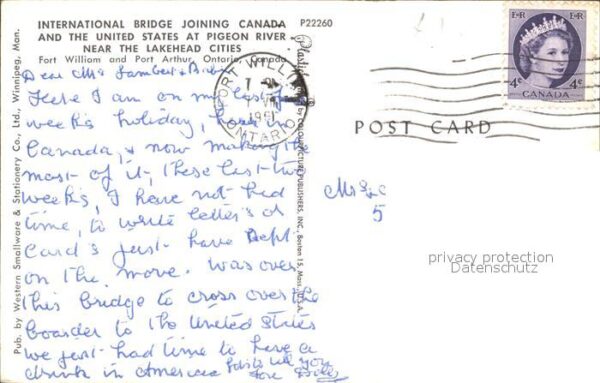 INTERNATIONAL BRIDGE JOINING CANADA P22260
AND THE UNITED STATES AT PIGEON RIVER
NEAR THE LAKEHEAD CITIES
Fort William and Port Arthur, Ontario, Canada
Dear Mrs Lambert &
Here I am on my last few
weeks holiday, here in
Canada, & now making the
most of it, these last two
weeks, I have not had
time, to write letter's or
Card's just have kept
on the move. Was over
this bridge to cross over the
boarder to the United States
we just had time to have a
drink in America
FORT WILLIAM
1961
ONTARIO
E R E R
4c 4c
CANADA
POST CARD
5
privacy protection
Datenschutz
Pub. by Western Smallware & Stationery Co., Ltd., Winnipeg, Man.
PUBLISHERS, INC., Boston 15, Mass., U.S.A.